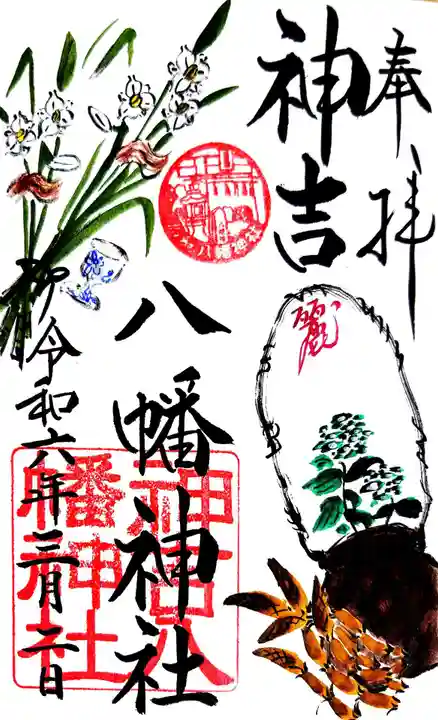 奉拝
神吉
八幡神社
麗
令和六年三月二日
神吉八
幡神社